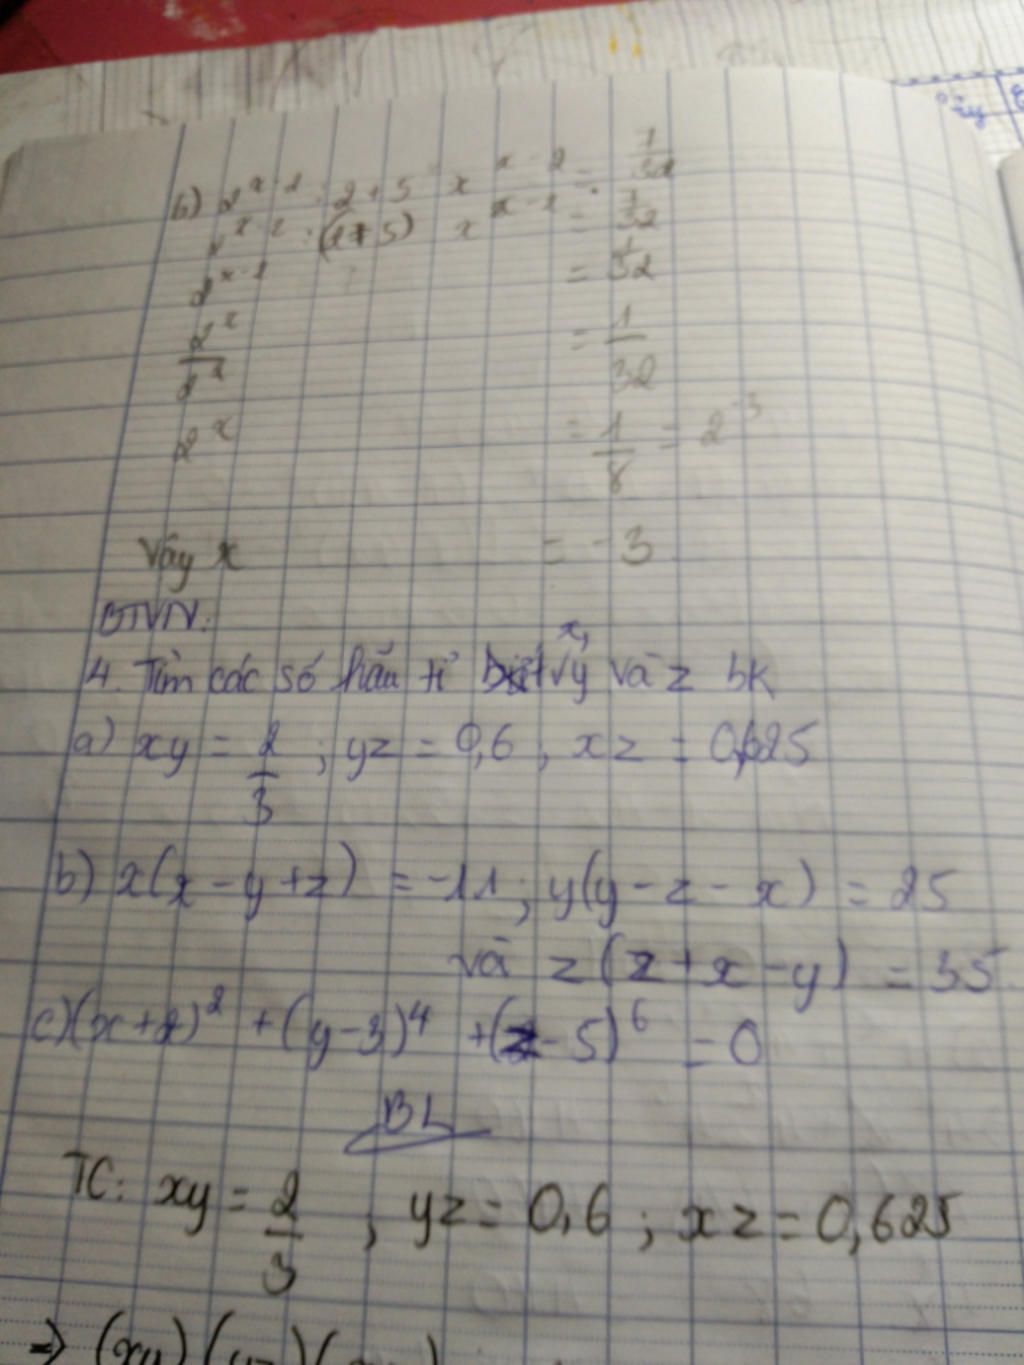 b) 2^{x-2} : 2 + 5 x^{x-2} = \frac{7}{32}
= \frac{7}{32}
2^{x-2} = \frac{1}{32}
\frac{2^x}{2^2} = \frac{1}{32}
2^x = \frac{1}{8} = 2^{-3}
Vậy x = -3
BTVN:
4. Tìm các số hữu tỉ x, y và z bk
a) xy = \frac{2}{3} ; yz = 0,6 ; xz = 0,625
b) x(x - y + z) = -11 ; y(y - z - x) = 25
và z(z + x - y) = 35
c) (x+2)^2 + (y-3)^4 + (z-5)^6 = 0
BL
TC: xy = \frac{2}{3} ; yz = 0,6 ; xz = 0,625
=> (xy)(yz)